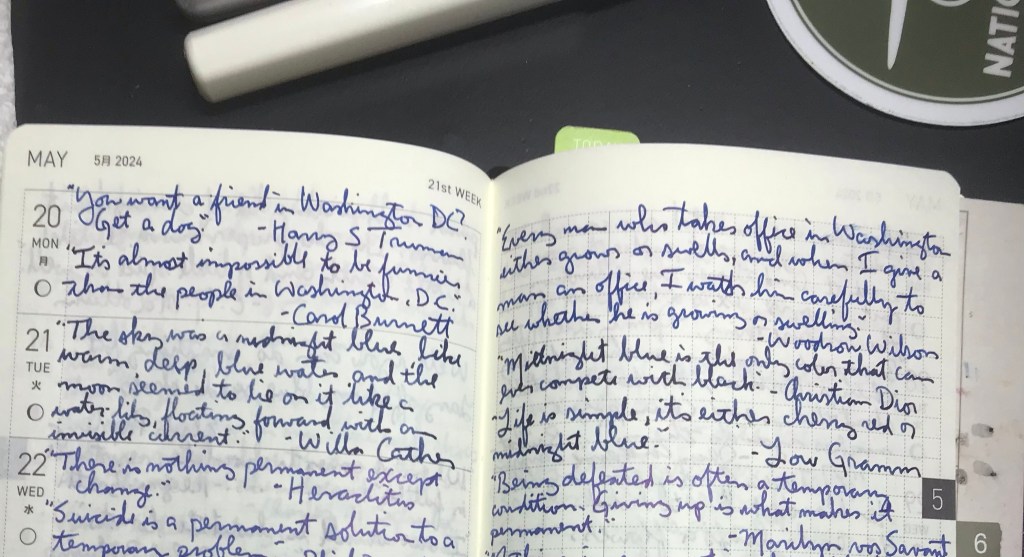 NATIO
TODAY
MAY 5月 2024
21st WEEK
20
MON
月
"You want a friend in Washington DC?
Get a dog." -Harry S Truman
"It's almost impossible to be funnier
than the people in Washington, DC."
-Carol Burnett
21
TUE
火
"The sky was a midnight blue, like
warm, deep, blue water, and the
moon seemed to lie on it like a
water-lily, floating forward with an
invisible current." -Willa Cather
22
WED
水
"There is nothing permanent except
change." -Heraclitus
"Suicide is a permanent solution to a
temporary problem."
"Every man who takes office in Washington
either grows or swells, and when I give a
man an office, I watch him carefully to
see whether he is growing or swelling."
-Woodrow Wilson
"Midnight blue is the only color that can
ever compete with black. -Christian Dior
"Life is simple, it's either cherry red or
midnight blue." -Lou Gramm
"Being defeated is often a temporary
condition. Giving up is what makes it
permanent." -Marilyn vos Savant
5
6